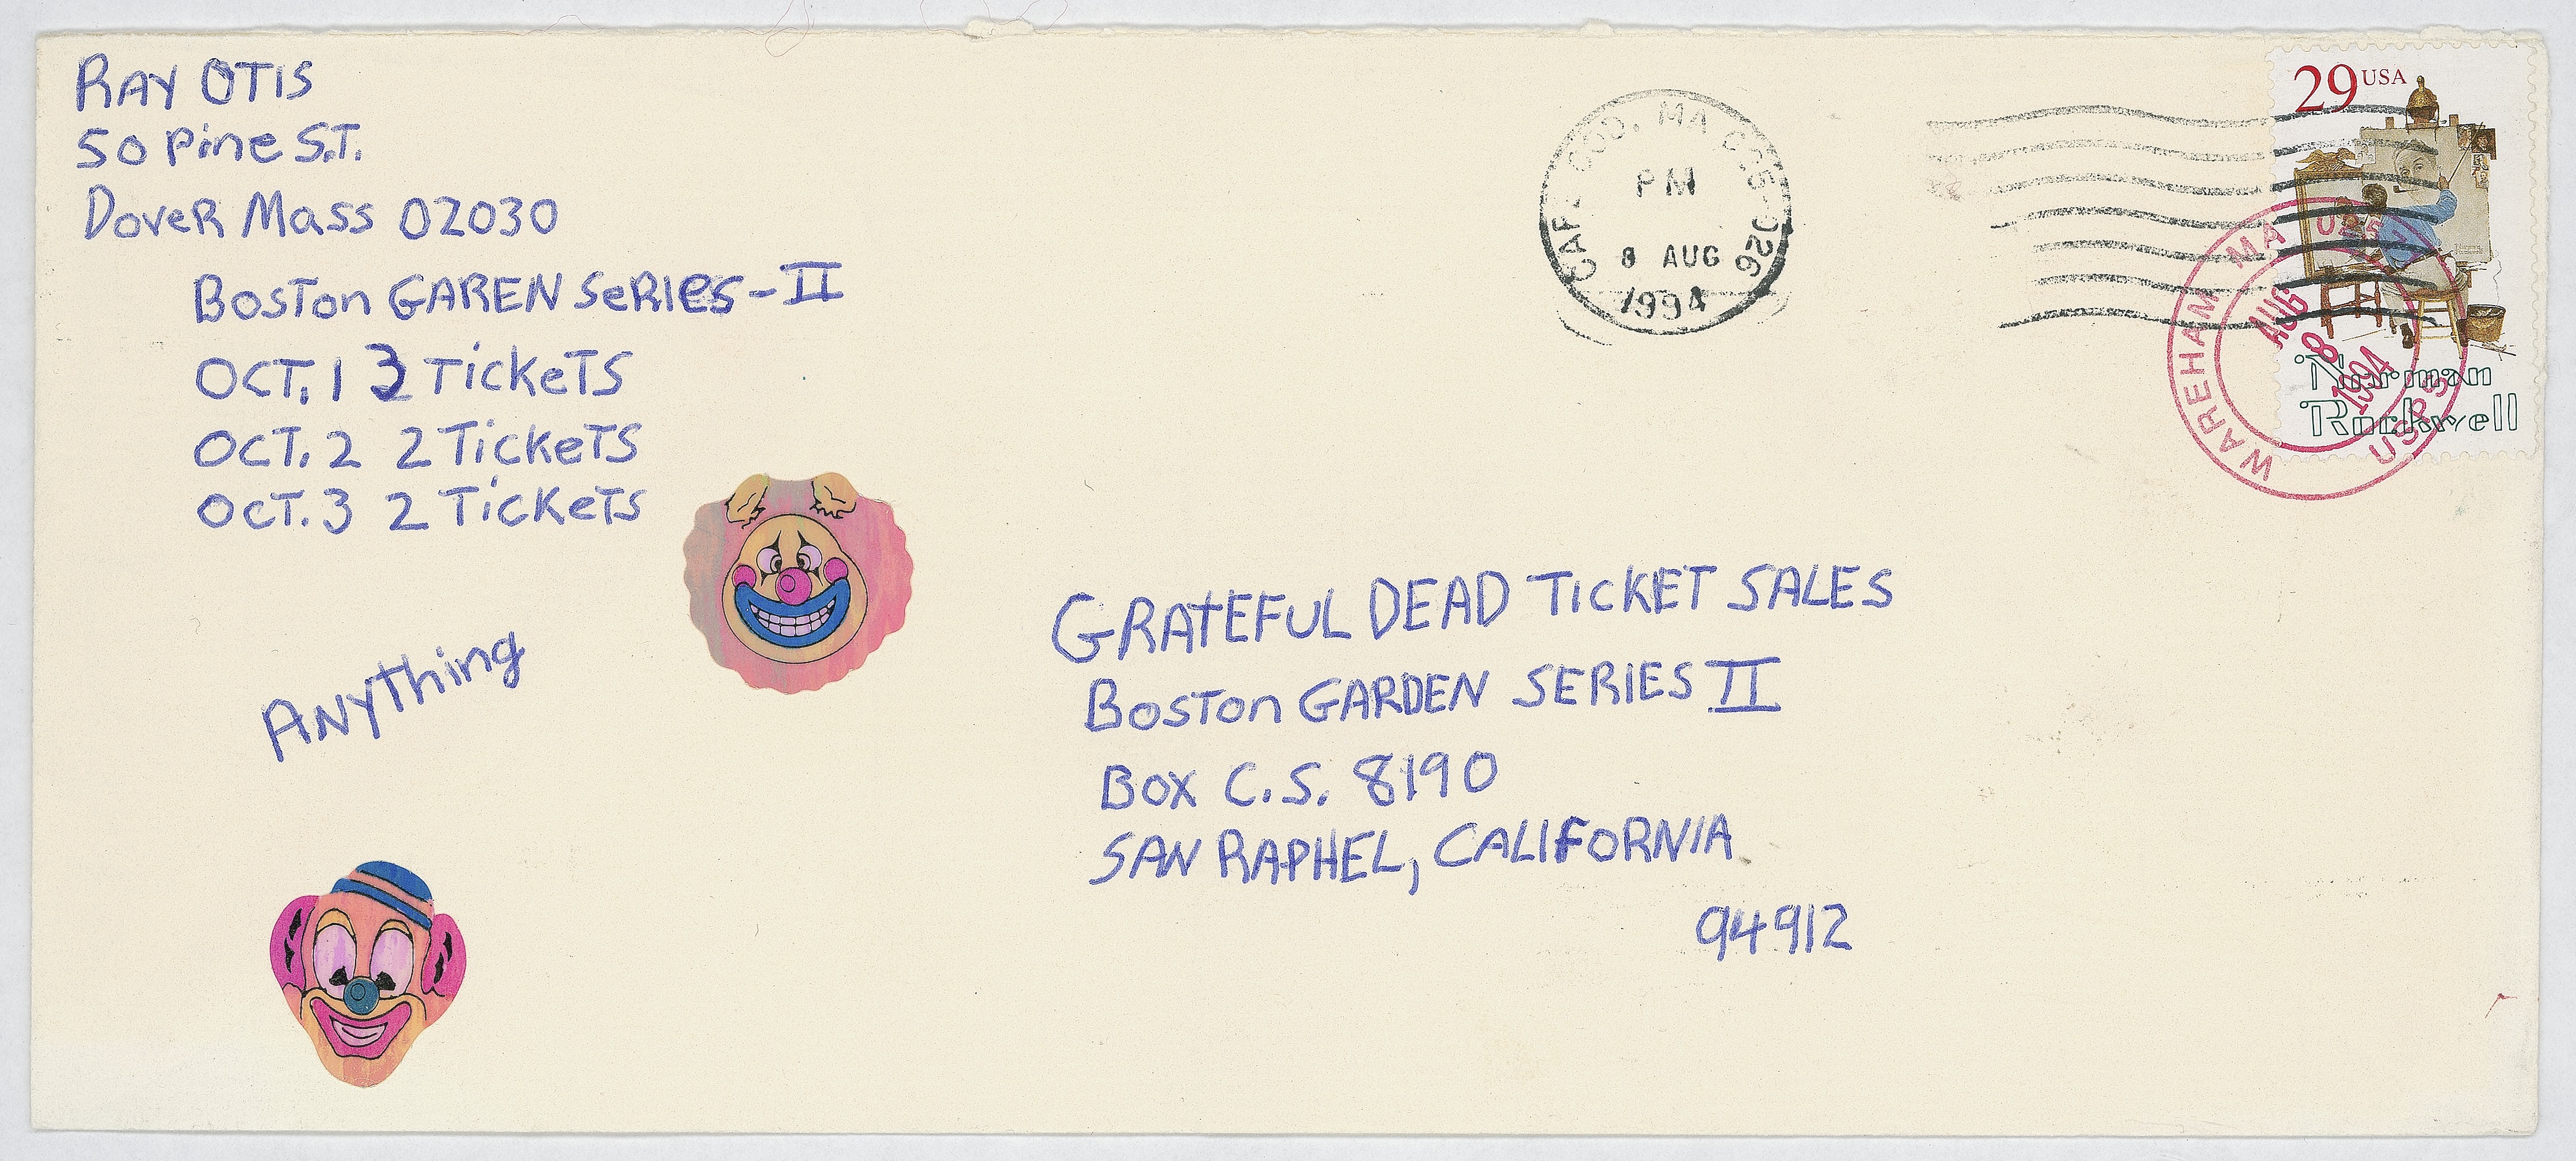 RAY OTIS
50 Pine S.T.
Dover Mass 02030
Boston GAREN SERIES-II
OCT. 1 2 TICKETS
OCT. 2 2 TICKETS
OCT. 3 2 TICKETS
Anything
GRATEFUL DEAD TICKET SALES
Boston GARDEN SERIES II
Box C.S. 8190
SAN RAPHEL, CALIFORNIA
94912
CAPE COD, MA 026
PM
8 AUG
1994
29 USA
Norman
Rockwell
WAREHAM MA
USPS
AUG
8
1994